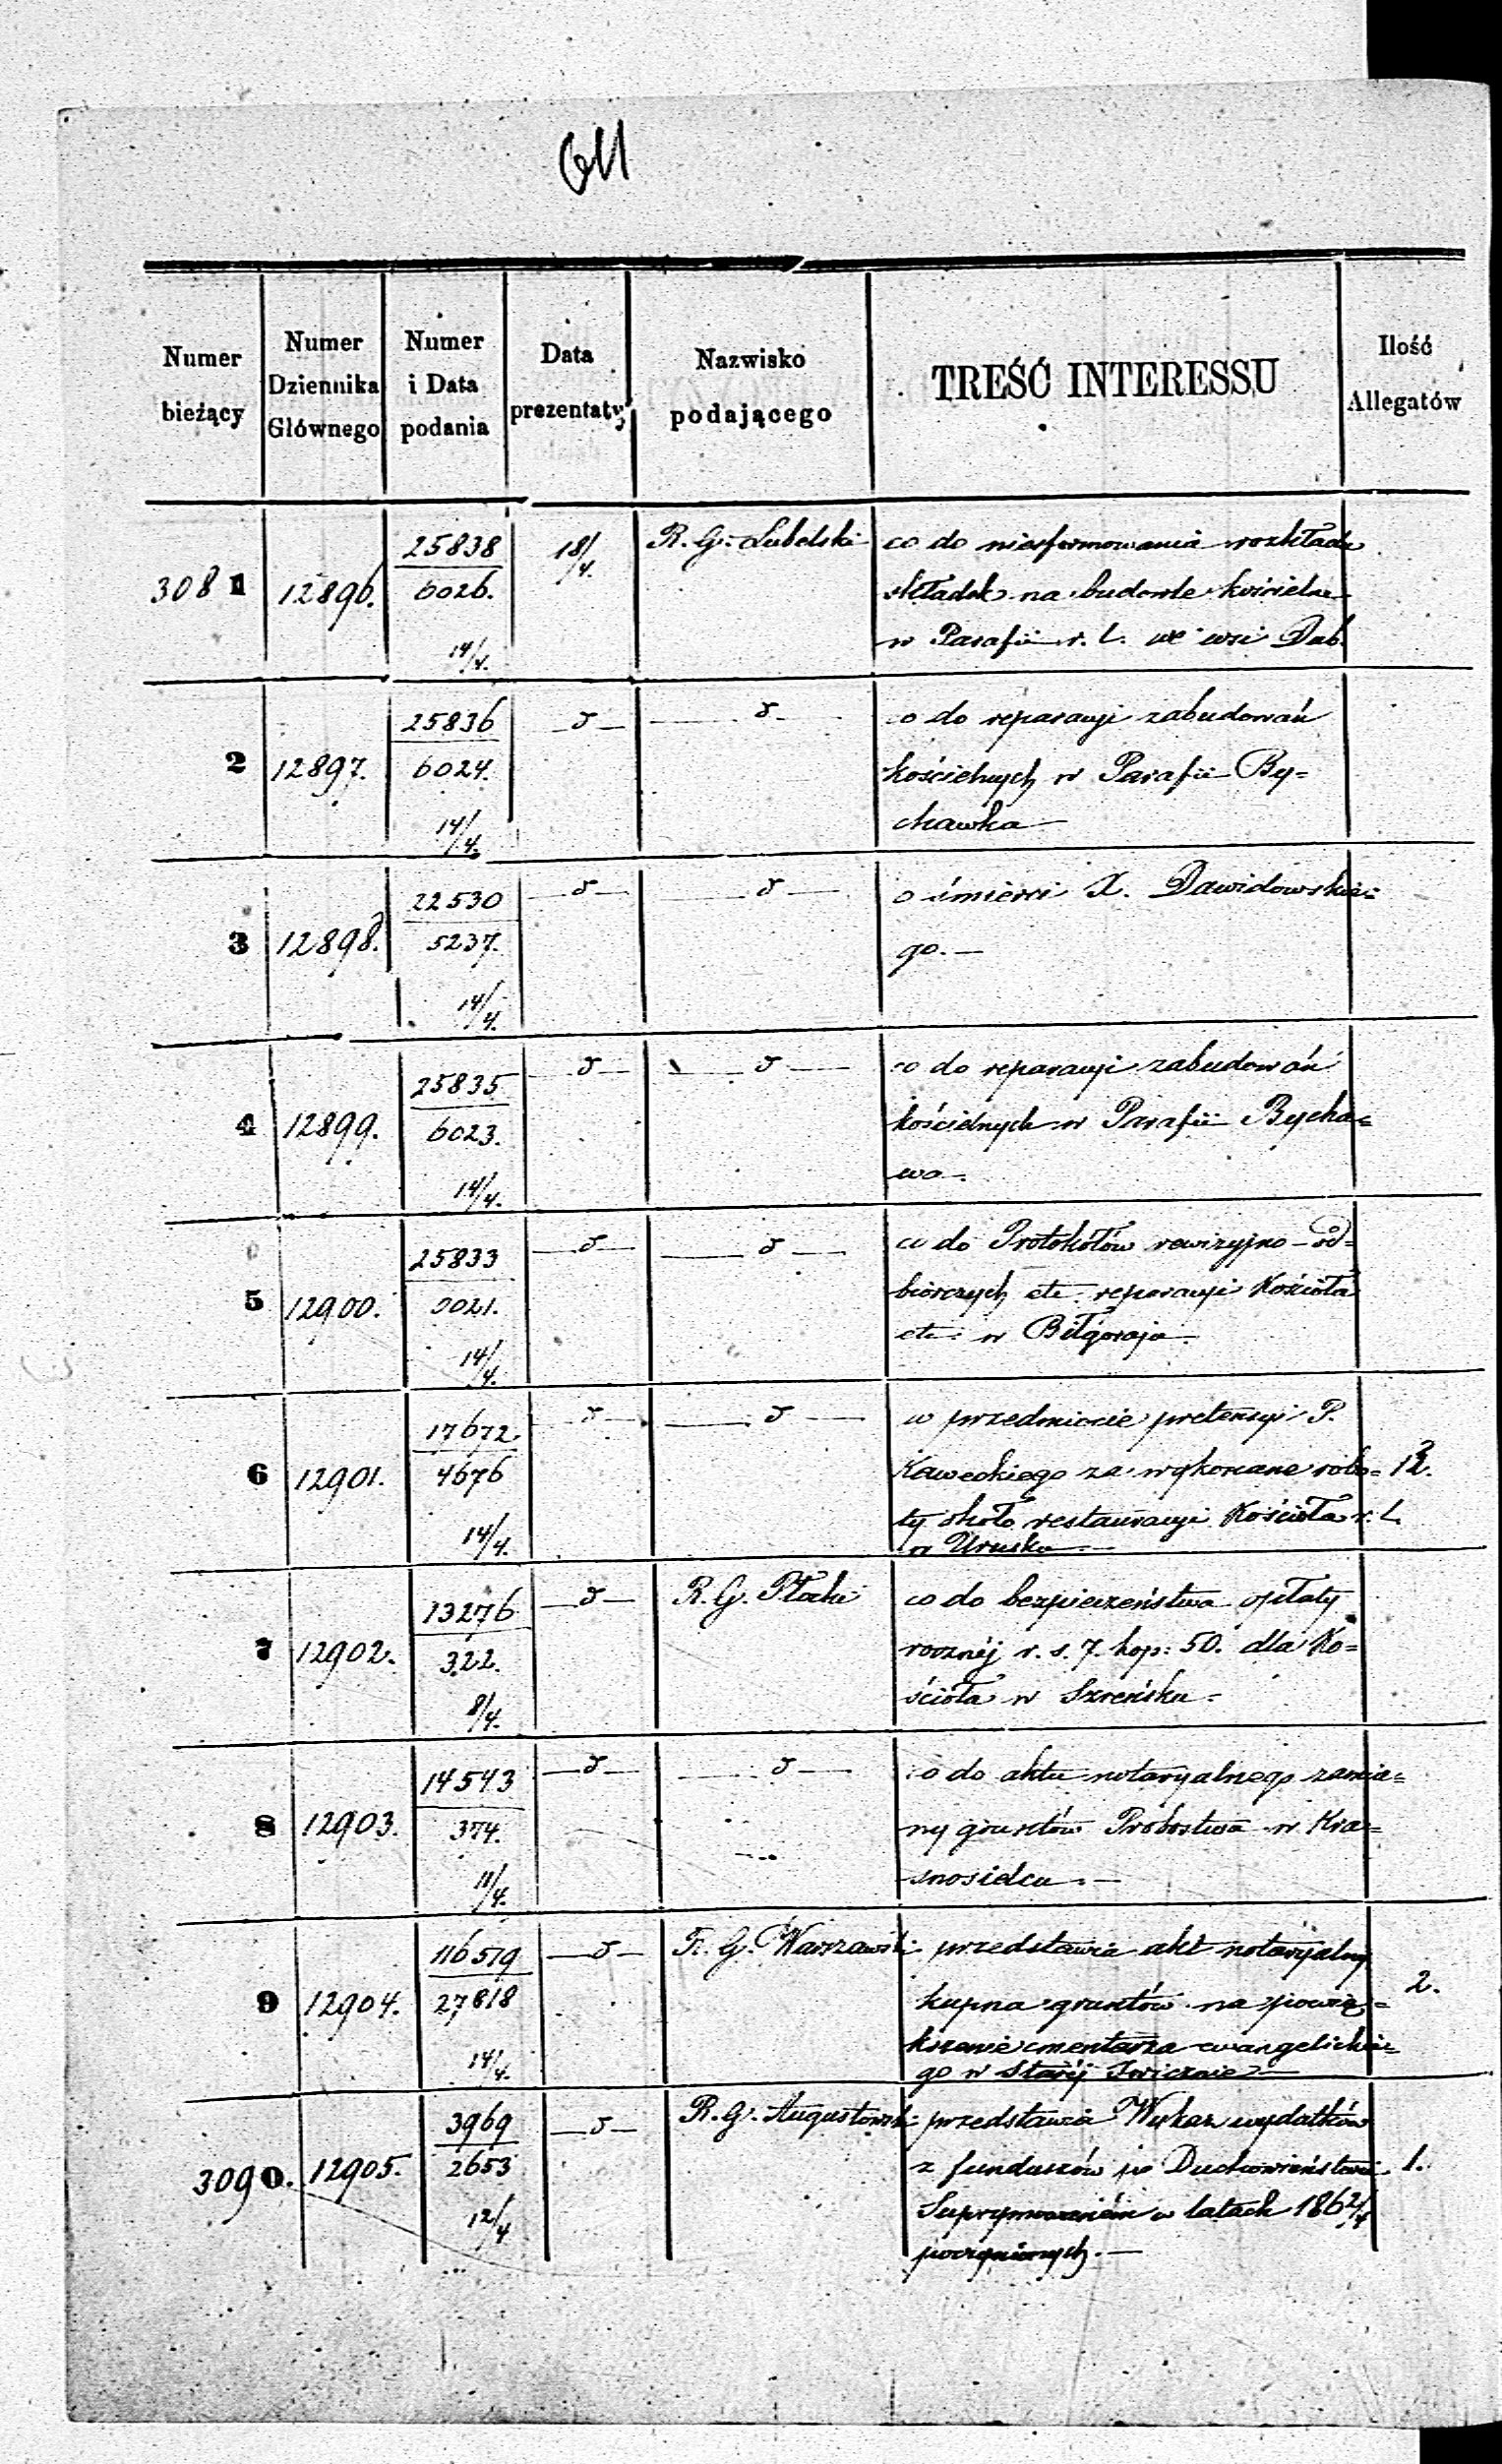 611
Numer bieżący
Numer Dziennika Głównego
Numer i Data podania
Data prezentaty
Nazwisko podającego
TREŚĆ INTERESSU
Ilość Allegatów
3081 12896. 25838 18/4. R. G. Lubelski co do niesformowania rozkładu
6026. składek na budowle kościelne
14/4. w Parafii r. l. we wsi Dub.
2 12897. 25836 d d co do reparacyi zabudowań
6024. kościelnych w Parafii By=
14/4. chawka
3 12898. 22530 d d o śmierci X. Dawidowskie=
5237. go.
14/4.
4 12899. 25835 d d co do reparacyi zabudowań
6023. kościelnych w Parafii Bycha=
14/4. wa.
5 12900. 25833 d d co do Protokołów rewizyjno-od=
6021. biorczych etc. reparacyi Kościoła
14/4. etc. w Biłgoraju
6 12901. 17672 d d w przedmiocie pretensyi P.
4676 Kaweckiego za wykonane robo= 12.
14/4. ty około restauracyi Kościoła r. l.
w Uhrusku
7 12902. 13276 d R. G. Płocki co do bezpieczeństwa opłaty
322. rocznéj r. s. 7. kop: 50. dla Ko=
8/4. ścioła w Szreńsku
8 12903. 14543 d d co do aktu notaryalnego zamia=
374. ny gruntów Probostwa w Kra=
11/4. snosielcu.
9 12904. 116519 d R. G. Warszawski przedstawia akt notaryalny
27818 kupna gruntów na powię= 2.
14/4. kszenie cmentarza ewangelickie=
go w Staréj Iwicznie
3090. 12905. 3969 d R. G. Augustowski przedstawia Wykaz wydatków
2653 z funduszów po Duchowieństwie 1.
12/4 Suprymowaném w latach 1862/4
poczynionych.